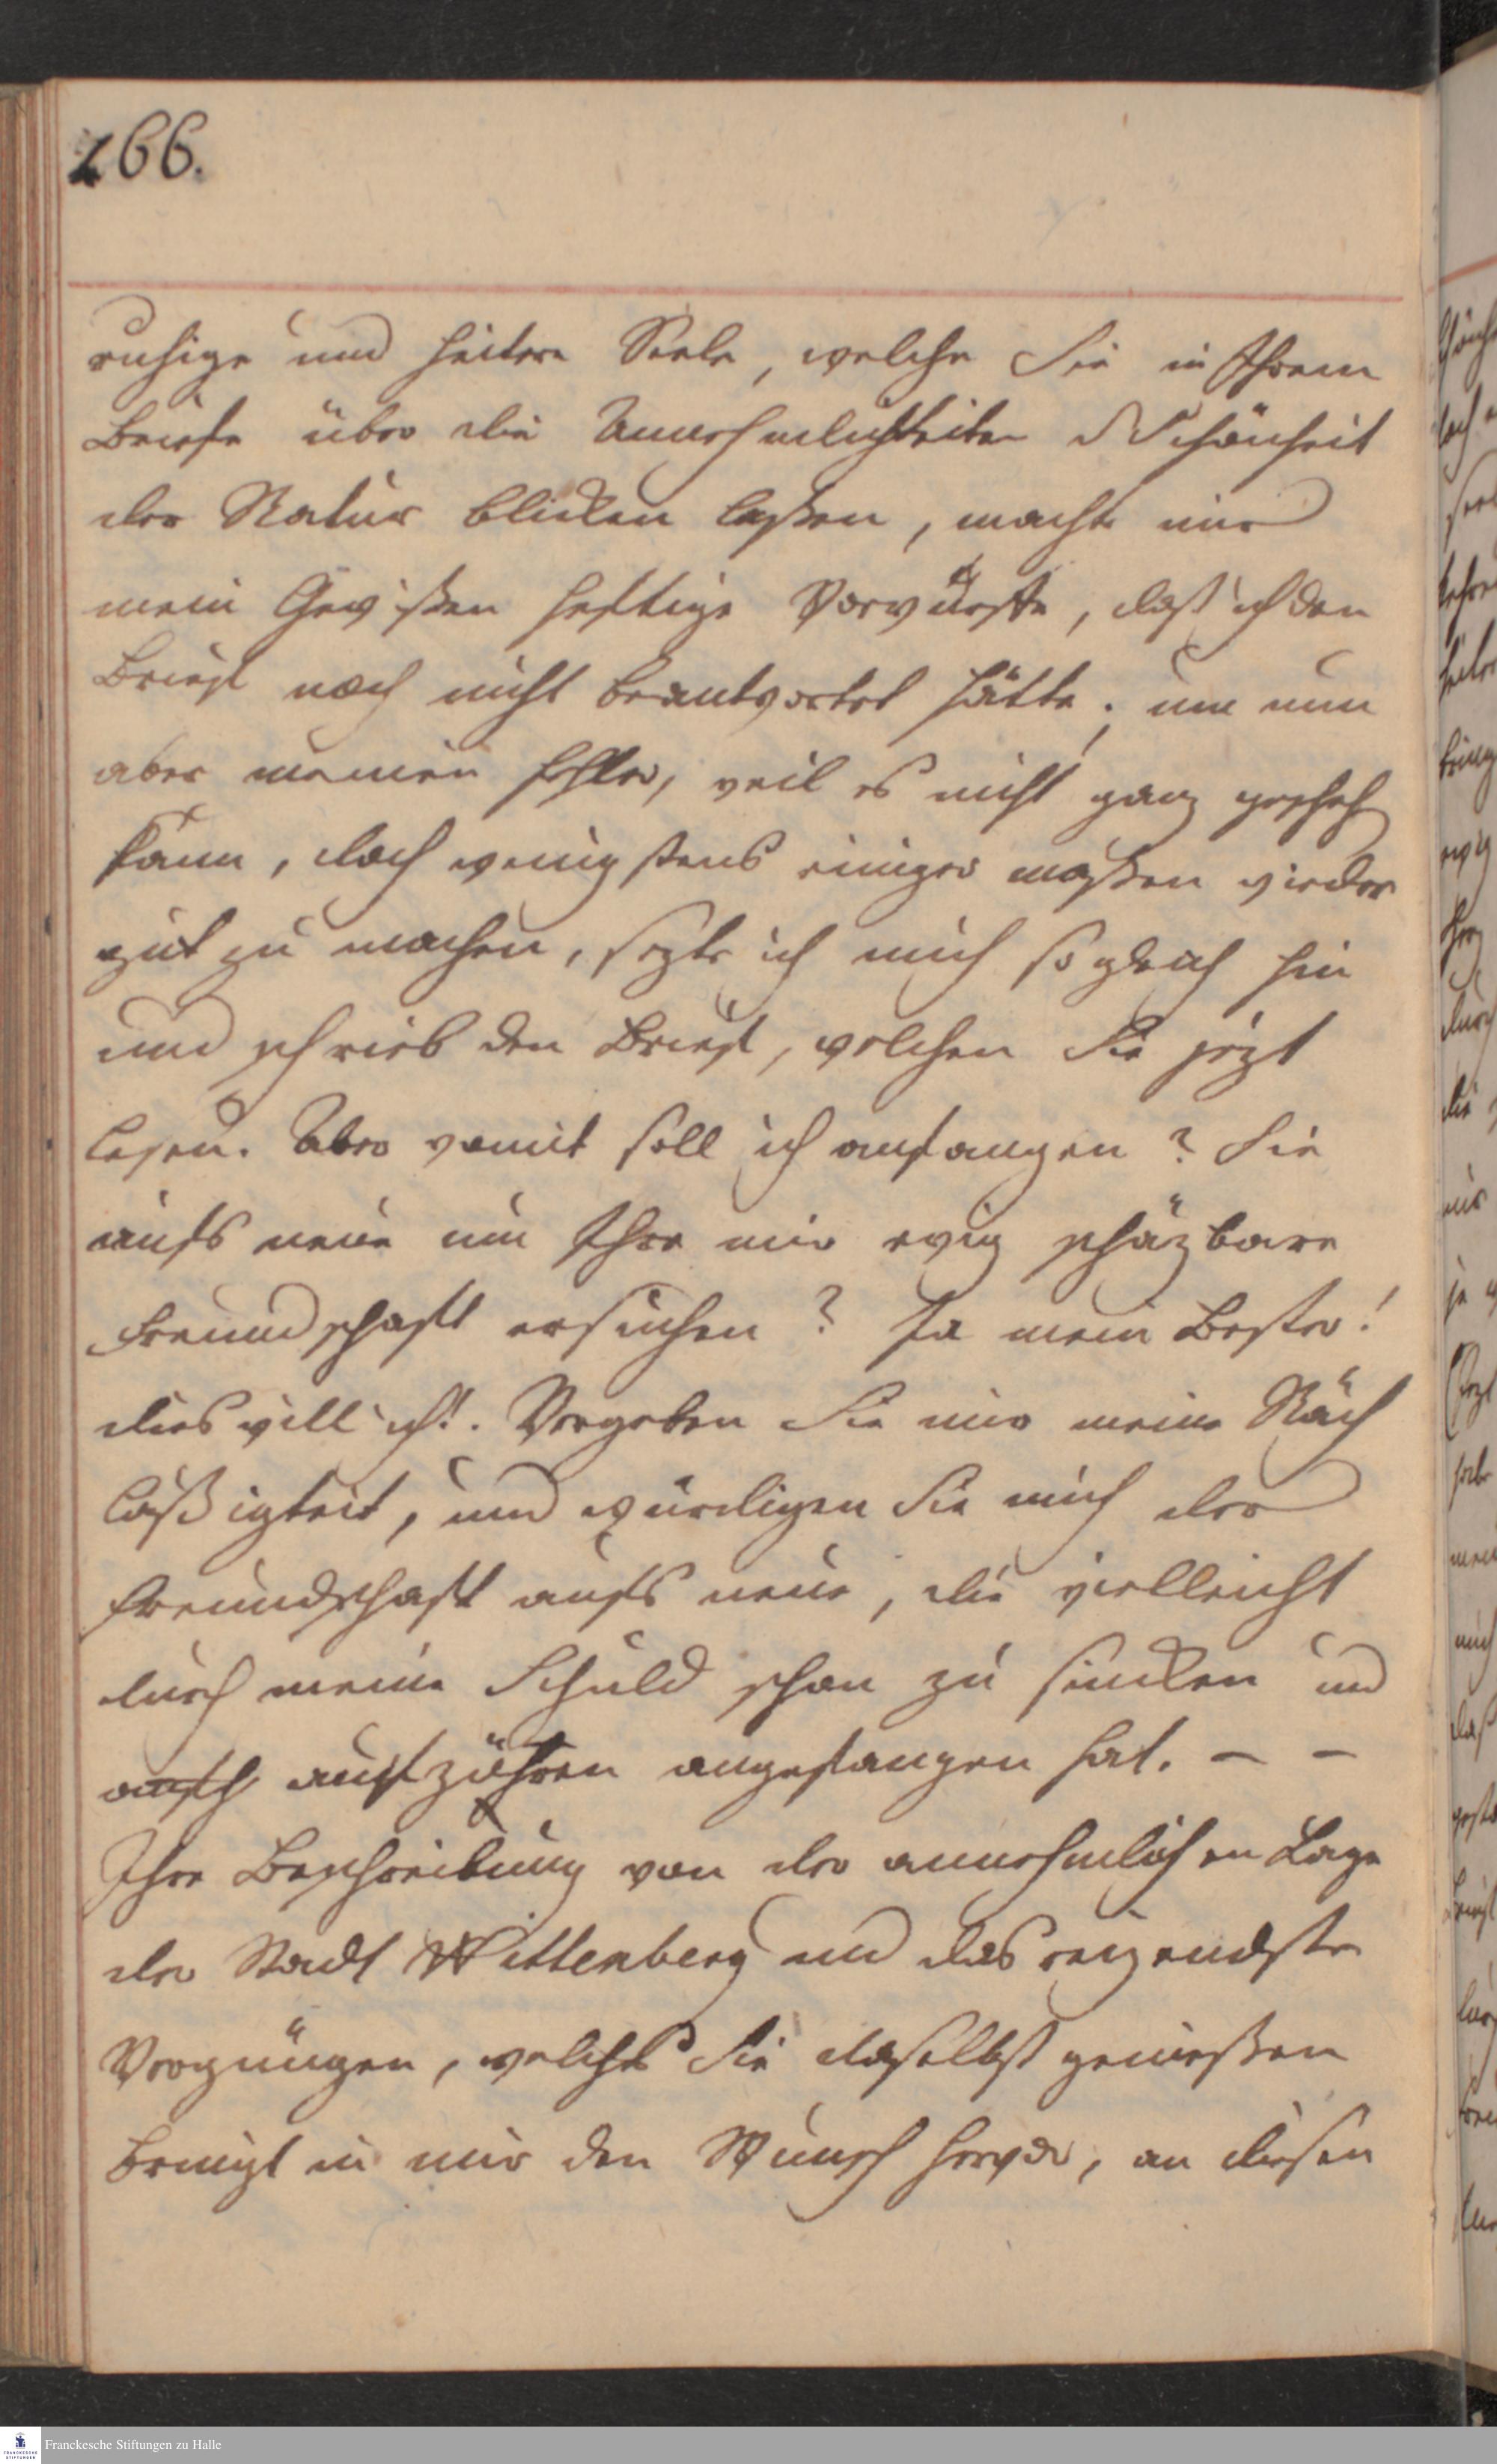 166.
ruhige und heitere Seele, welche Sie in Ihrem
Briefe über die Annehmlichkeiten d Schönheit
der Natur blicken laßen, machte mir
mein Gewißen heftige Vorwürffe, daß ich den
Brief noch nicht beantwortet hätte; um nun
aber meinen Fehler, weil es nicht ganz gescheh
kann, doch wenigstens einiger maßen wieder
gut zu machen, sezte ich mich sogleich hin
und schrieb den Brief, welchen Sie jezt
lesen. Aber womit soll ich anfangen? Sie
aufs neue um Ihre mir ewig schäzbare
Freundschaft ersuchen? Ja mein Bester!
dies will ich!. Vergeben Sie mir meine Nach
läßigkeit, und würdigen Sie mich der
Freundschaft aufs neue, die vielleicht
durch meine Schuld schon zu sincken und
aufzuhören angefangen hat. – –
Ihre Beschreibung von der annehmlichen Lage
der Stadt Wittenberg und das reizendste
Vergnügen, welches Sie daselbst genießen
bringt in mir den Wunsch hervor, an diesen
Franckesche Stiftungen zu Halle